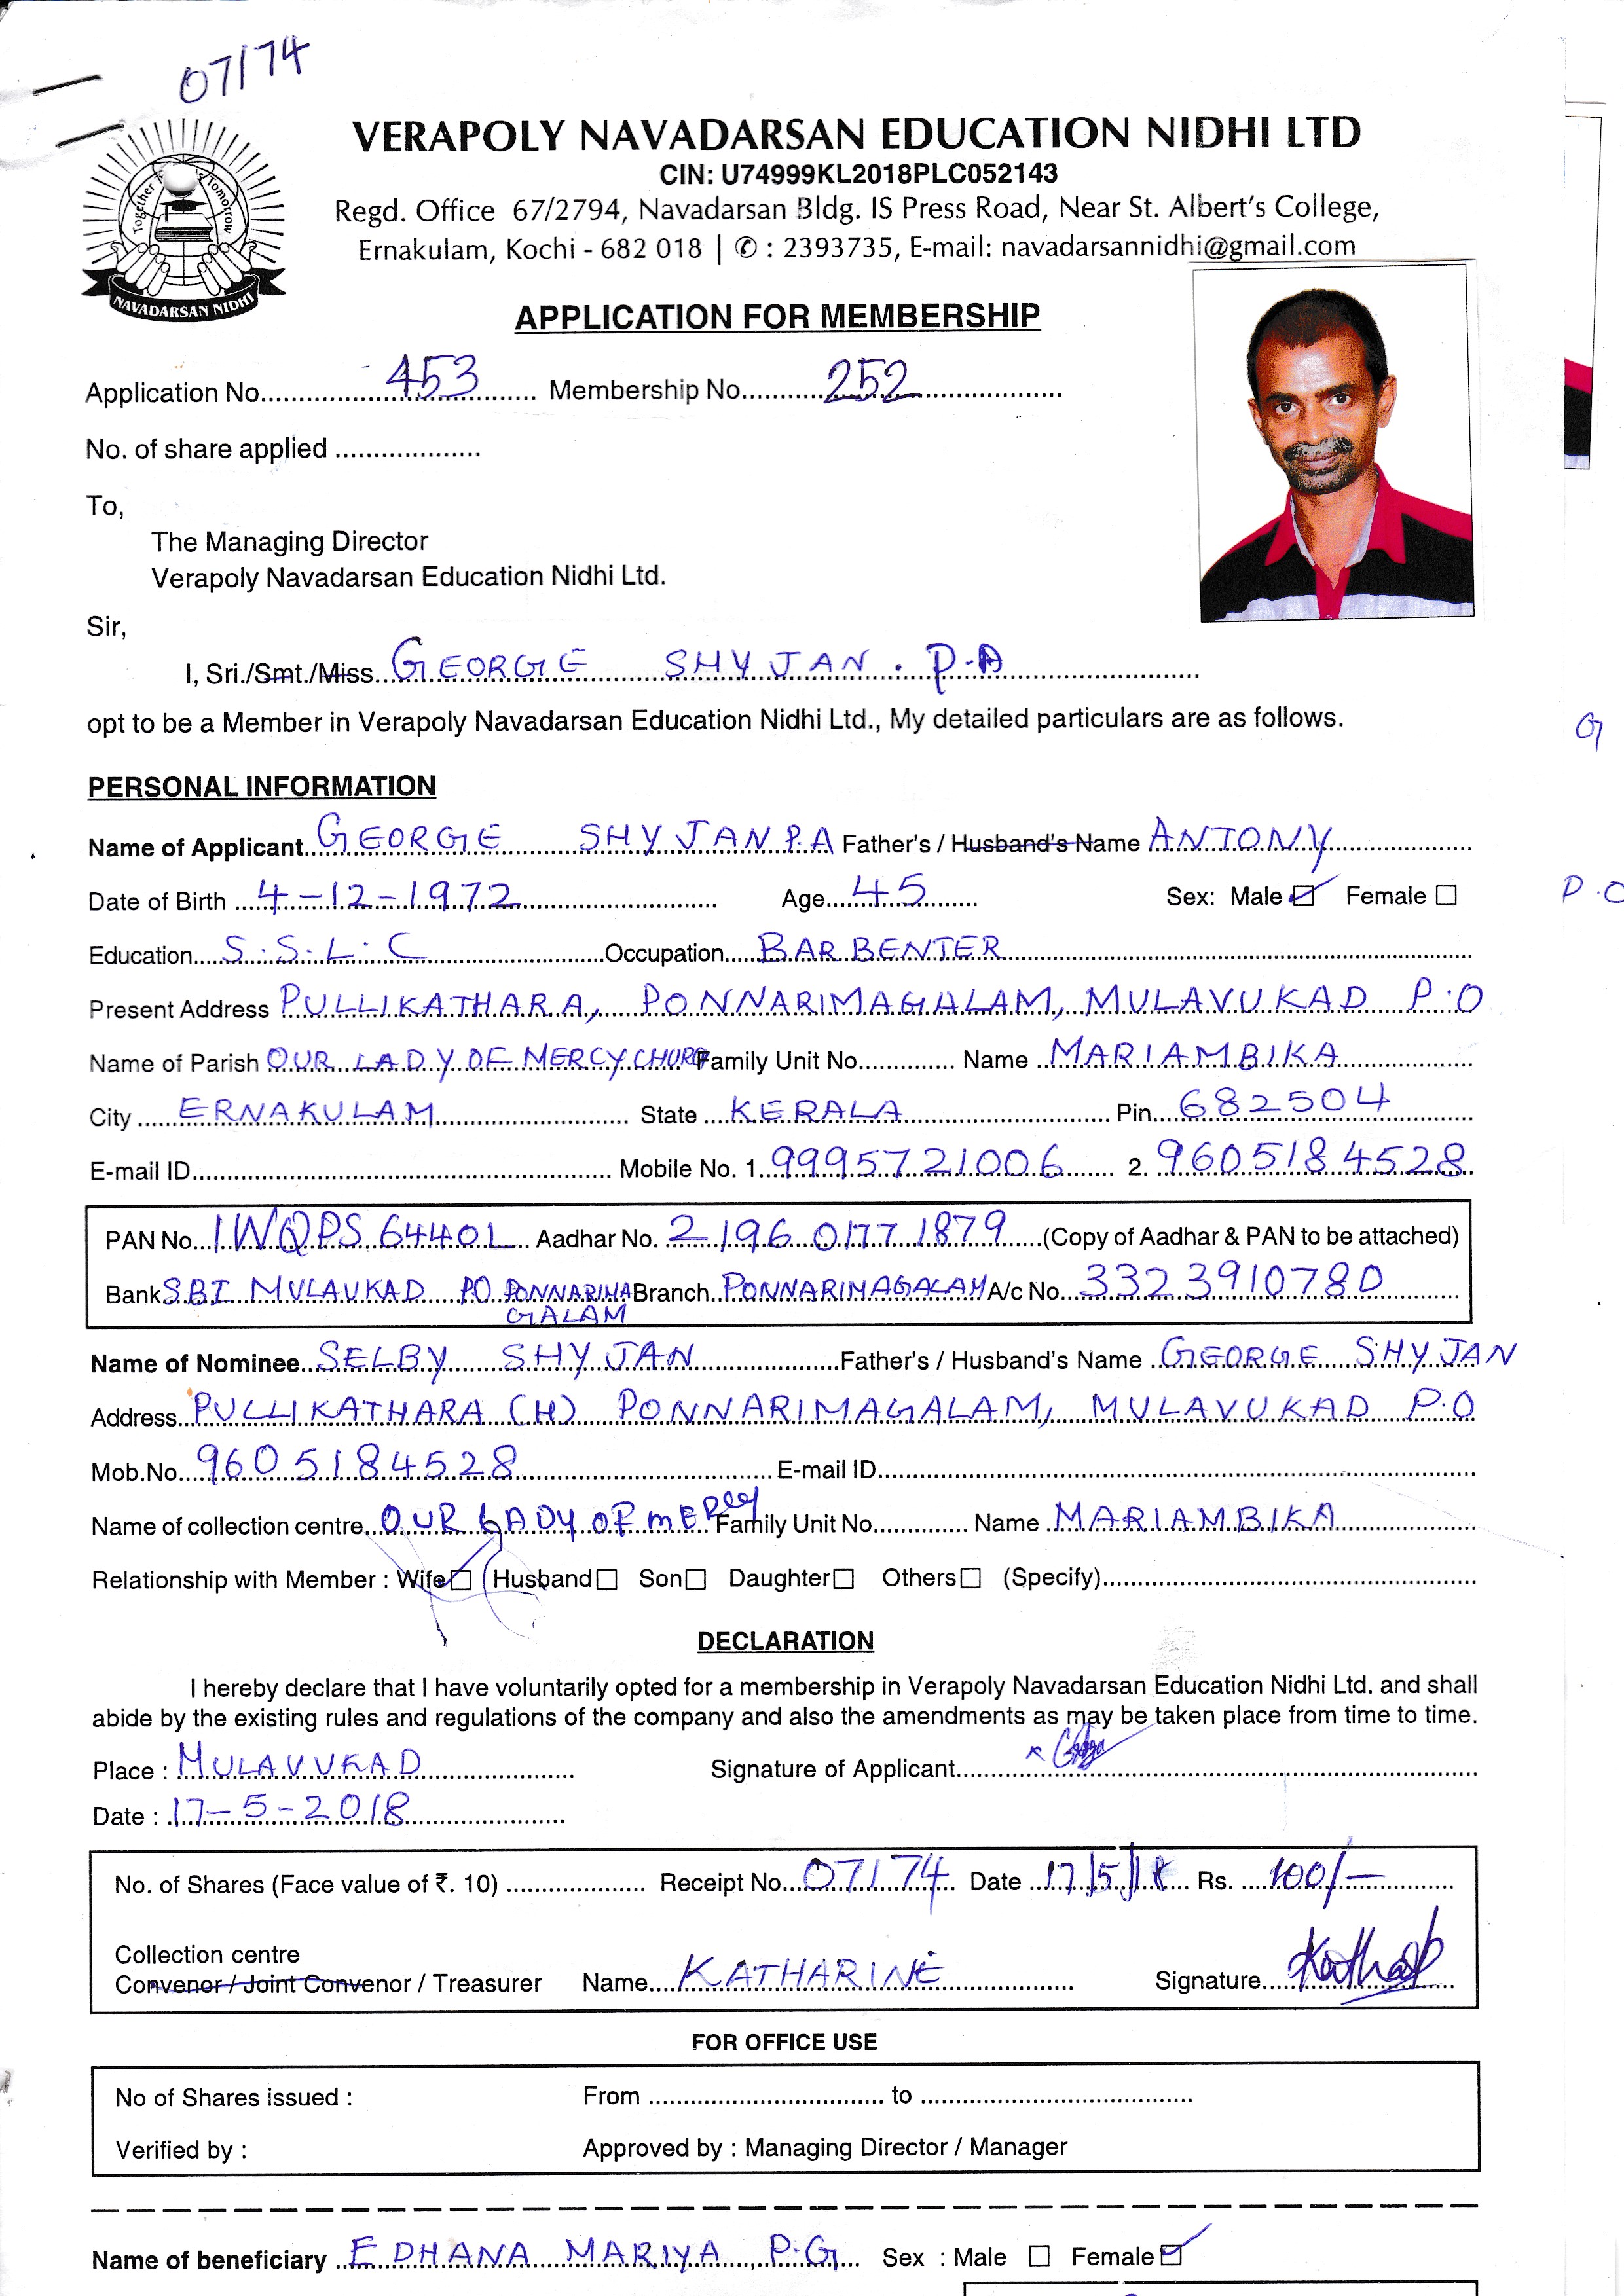 07174
VERAPOLY NAVADARSAN EDUCATION NIDHI LTD
CIN: U74999KL2018PLC052143
Regd. Office 67/2794, Navadarsan Bldg. IS Press Road, Near St. Albert's College,
Ernakulam, Kochi - 682 018 | ✆ : 2393735, E-mail: navadarsannidhi@gmail.com
Together Tomorrow
NAVADARSAN NIDHI
APPLICATION FOR MEMBERSHIP
Application No. 453 Membership No. 252
No. of share applied
To,
The Managing Director
Verapoly Navadarsan Education Nidhi Ltd.
Sir,
I, Sri./Smt./Miss. GEORGE SHYJAN . P.A
opt to be a Member in Verapoly Navadarsan Education Nidhi Ltd., My detailed particulars are as follows.
PERSONAL INFORMATION
Name of Applicant GEORGE SHYJAN P.A Father's / Husband's Name ANTONY
Date of Birth 4-12-1972 Age 45 Sex: Male ☑ Female ☐
Education S.S.L.C Occupation BARBENTER
Present Address PULLIKATHARA, PONNARIMAGALAM, MULAVUKAD P.O
Name of Parish OUR LADY OF MERCY CHURC Family Unit No. Name MARIAMBIKA
City ERNAKULAM State KERALA Pin 682504
E-mail ID Mobile No. 1. 9995721006 2. 9605184528
PAN No. IWQPS 6440L Aadhar No. 2196 0177 1879 (Copy of Aadhar & PAN to be attached)
Bank SBI MULAUKAD PO PONNARIMA Branch PONNARIMAGALAM A/c No. 3323910780
GALAM
Name of Nominee SELBY SHYJAN Father's / Husband's Name GEORGE SHYJAN
Address PULLIKATHARA (H) PONNARIMAGALAM, MULAVUKAD P.O
Mob.No. 9605184528 E-mail ID
Name of collection centre OUR LADY OF MERCY Family Unit No. Name MARIAMBIKA
Relationship with Member : Wife ☑ Husband ☐ Son ☐ Daughter ☐ Others ☐ (Specify)
DECLARATION
I hereby declare that I have voluntarily opted for a membership in Verapoly Navadarsan Education Nidhi Ltd. and shall
abide by the existing rules and regulations of the company and also the amendments as may be taken place from time to time.
Place : MULAVUKAD Signature of Applicant
Date : 17-5-2018
No. of Shares (Face value of ₹. 10) Receipt No. 07174 Date 17/5/18 Rs. 100/-
Collection centre
Convenor / Joint Convenor / Treasurer Name KATHARINE Signature
FOR OFFICE USE
No of Shares issued : From to
Verified by : Approved by : Managing Director / Manager
Name of beneficiary EDHANA MARIYA P.G Sex : Male ☐ Female ☑